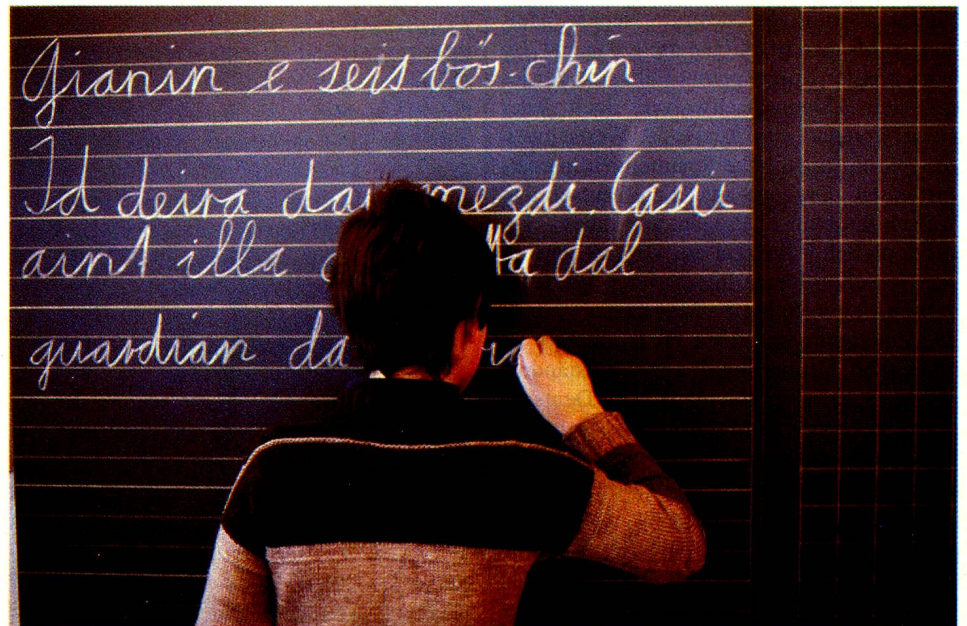 Gianin e seis bös-chin
Id deira dav mezdi. Casü
aint illa dal
guardian da